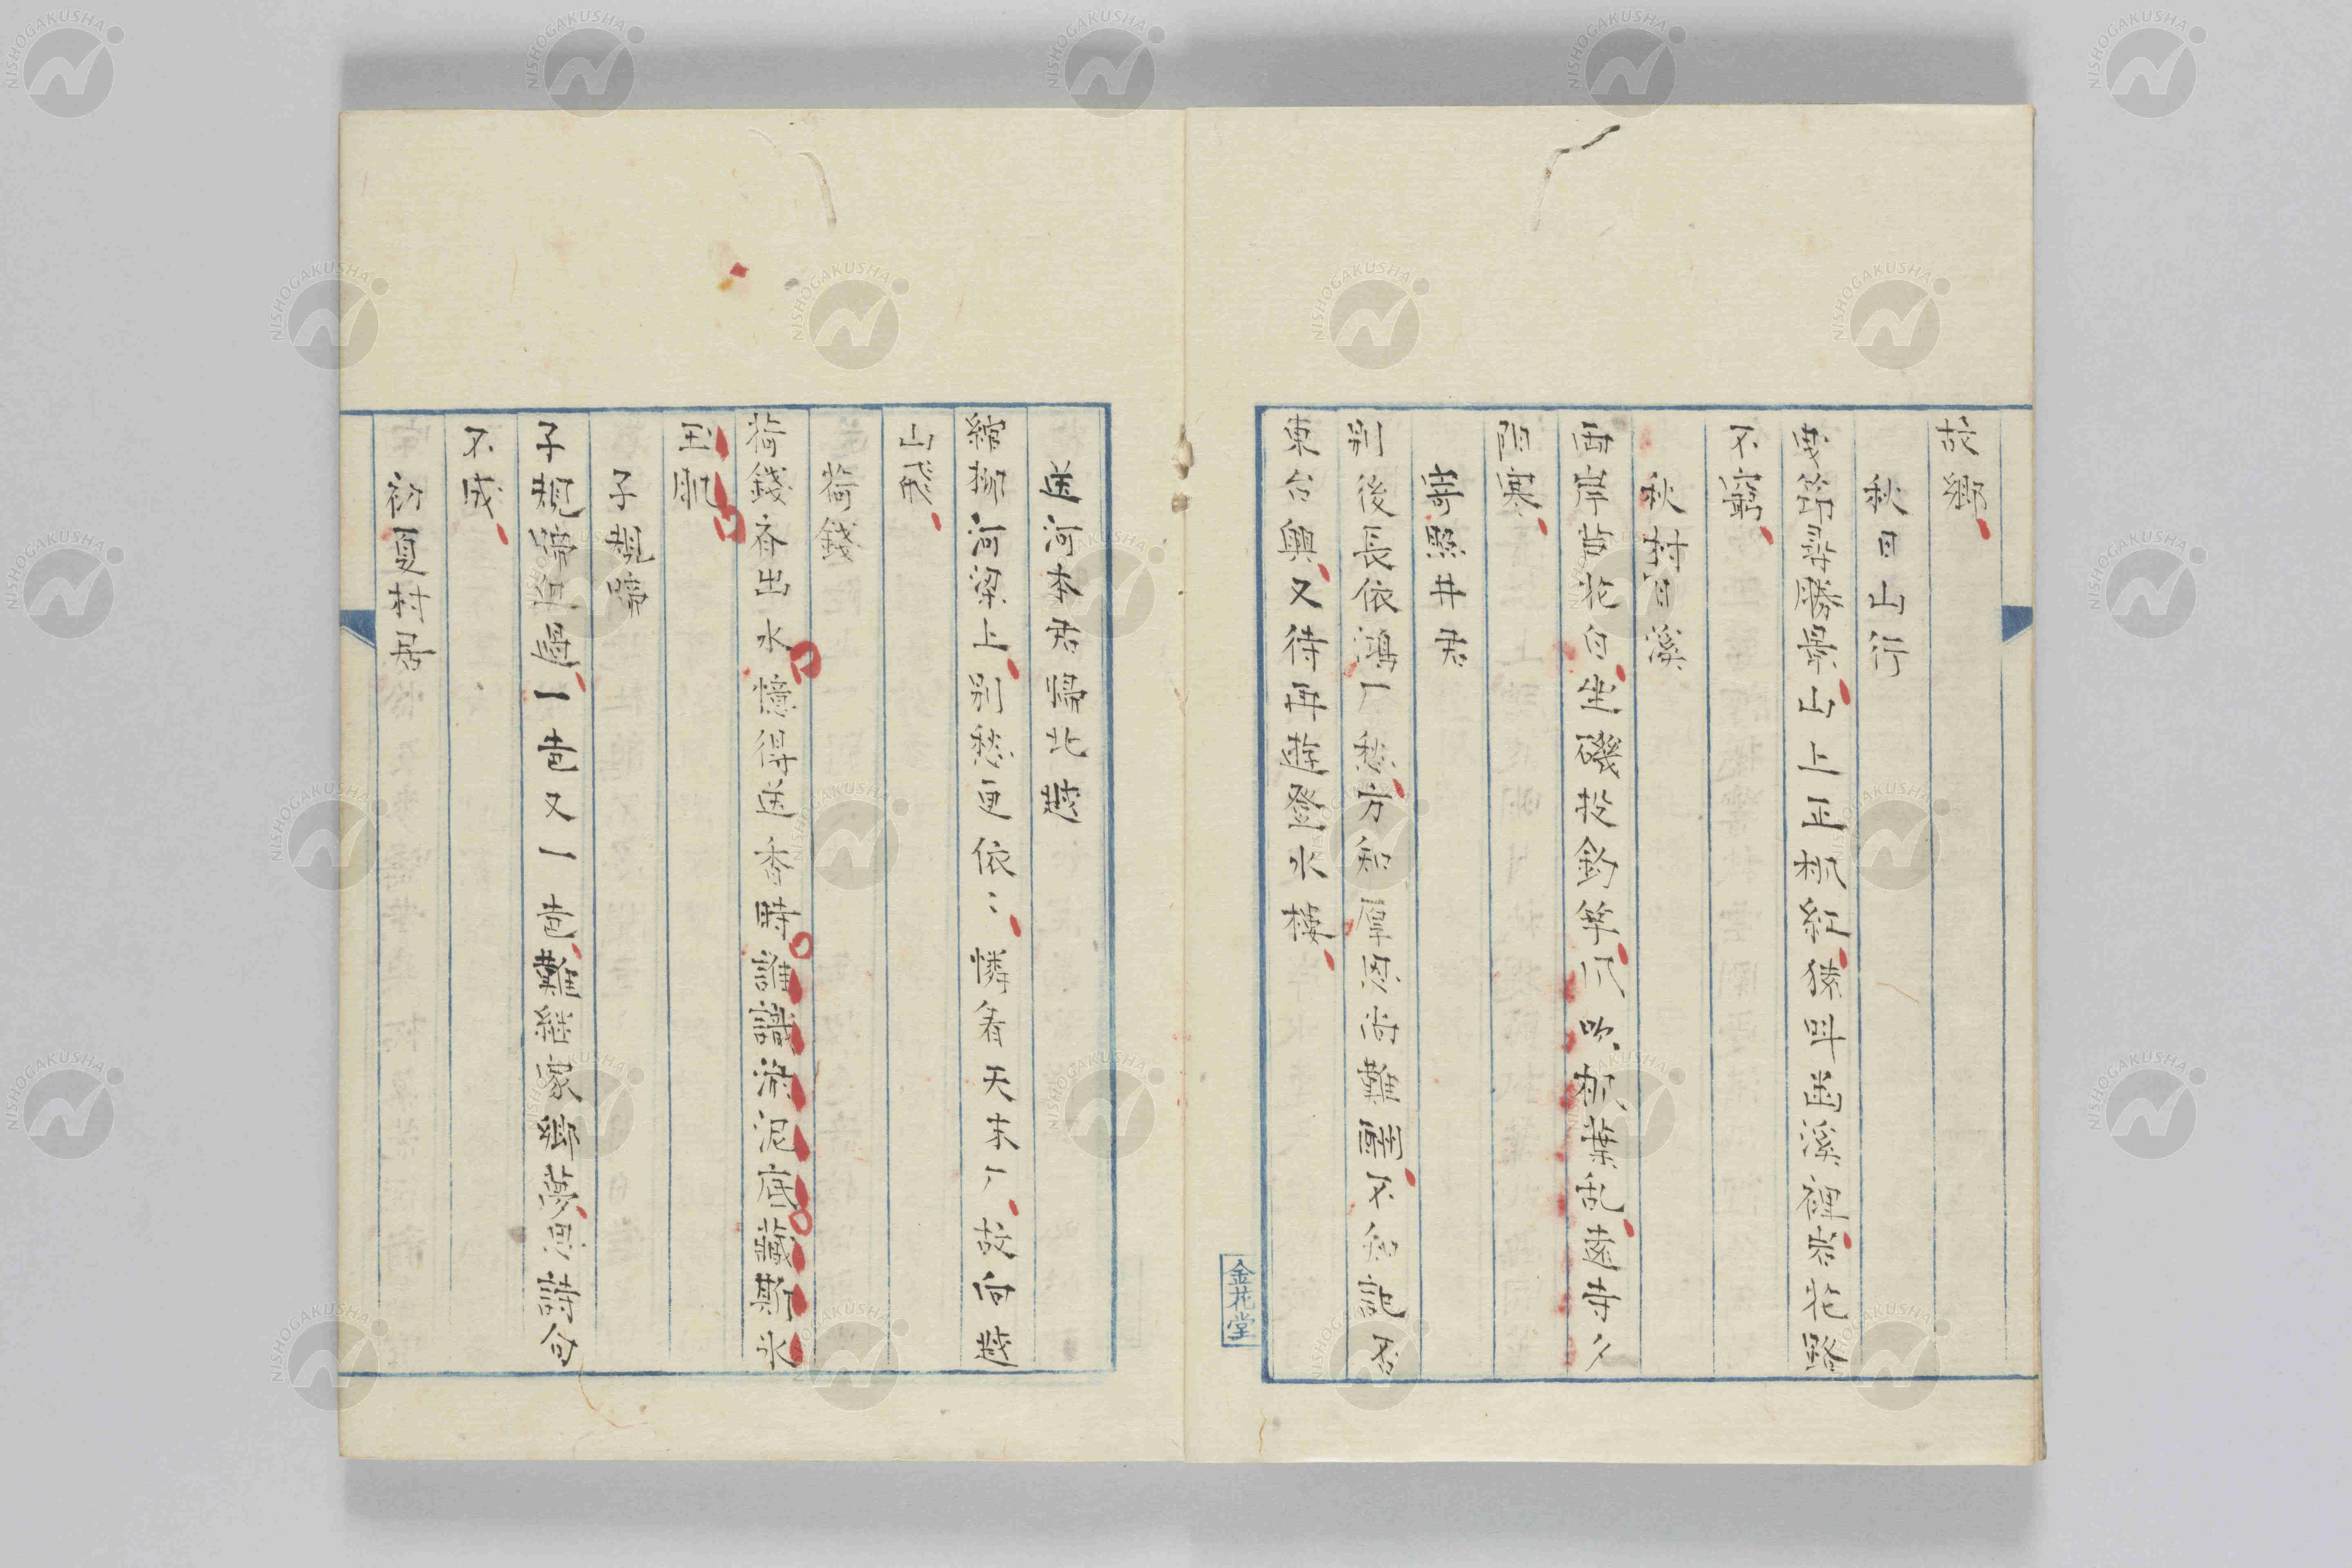 故鄉
秋日山行
曳笻尋勝景山上正楓紅猿叫幽溪裡岩花路
不窮
秋村日溪
両岸芦花白坐磯投釣竿 吹楓葉乱遠寺夕
陽寒
寄照井君
別後長依鴻 愁方知厚恩尚難酬不知記否
東台興又待再遊登水楼
送河李君歸北越
綰柳河梁上別愁更依〻憐看天末 故向越
山飛
荷錢
荷錢呑出水憶得送香時誰識淤泥底藏斯氷
玉肌
子規啼
子規啼 過一声又一声難継家鄉夢思詩句
不成
初夏村居
金花堂
NISHOGAKUSHA